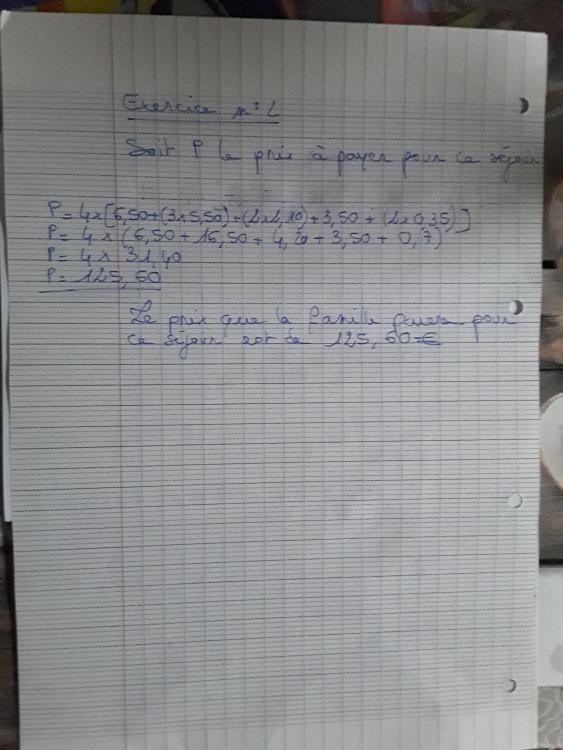 Exercice n°2
Soit P le prix à payer pour ce séjour
P = 4x[6,50+(3x5,50)+(2x2,10)+3,50+(2x0,35)]
P = 4 x (6,50 + 16,50 + 4,20 + 3,50 + 0,7)
P = 4 x 31,40
P = 125,60
Le prix que la famille paiera pour
ce séjour est de 125,60€